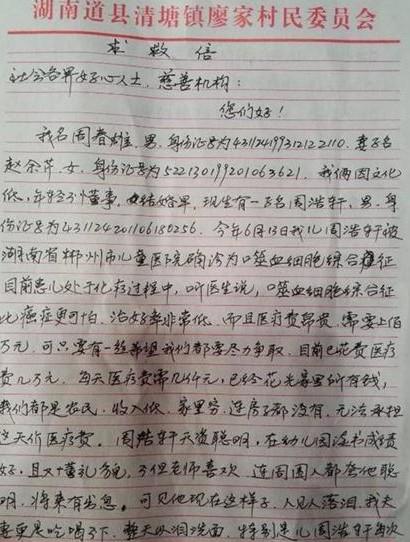 湖南道县清塘镇廖家村民委员会
求救信
社会各界好心人士、慈善机构:
您们好!
我名周春雄,男,身份证号为431124199312122110,妻子名
赵余芹,女,身份证号为522130199201063621,我俩因文化
低,年轻不懂事,结婚早,现生有一子名周浩轩,男,身
份证号为431124201106180256,今年6月13日我儿周浩轩被
湖南省郴州市儿童医院确诊为噬血细胞综合征
目前患儿处于化疗过程中,听医生说,噬血细胞综合征
比癌症更可怕,治好率非常低,而且医疗费昂贵,需要上佰
万元,可只要有一丝希望我们都要尽力争取,目前已花费医疗
费几万元,每天医疗费需几仟元,已经花光家里所有钱,
我们都是农民,收入低,家里穷,连房子都没有,无法承担
这天价医疗费。周浩轩天资聪明,在幼儿园读书成绩
好,且又十分懂礼貌,不但老师喜欢,连周围人都夸他聪
明,将来有出息。可见他现在这样子,人见人落泪,我夫
妻更是吃喝不下,整天以泪洗面,特别是儿周浩轩每次